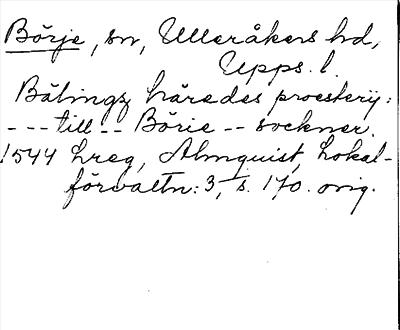 Börje, sn, Ulleråkers hd,
Upps. l.
Bälings härades prosterij:
--- till -- Börie -- sockner.
1544 Lreg, Almquist, Lokal-
förvaltn: 3, s. 170. orig.